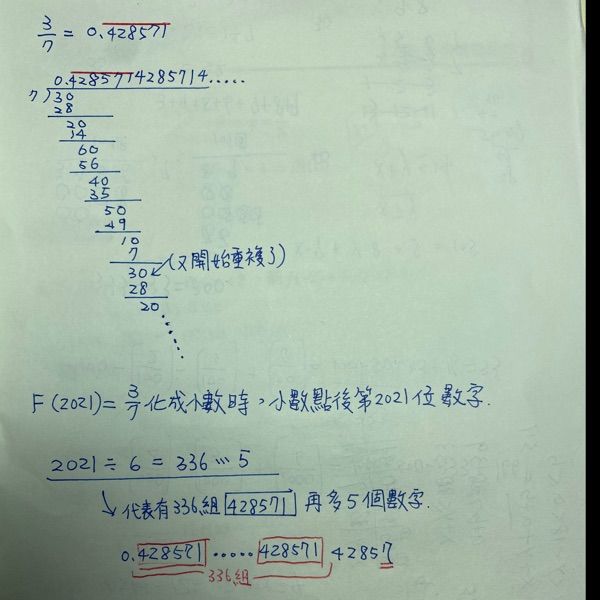 3/7 = 0.428571
0.4285714285714.....
7)30
28
20
14
60
56
40
35
50
49
10
7
30 (又開始重複了)
28
20
F(2021)= 3/7 化成小數時，小數點後第2021位數字.
2021 ÷ 6 = 336 … 5
代表有336組 428571 再多5個數字.
0.428571 ..... 428571 42857
336組